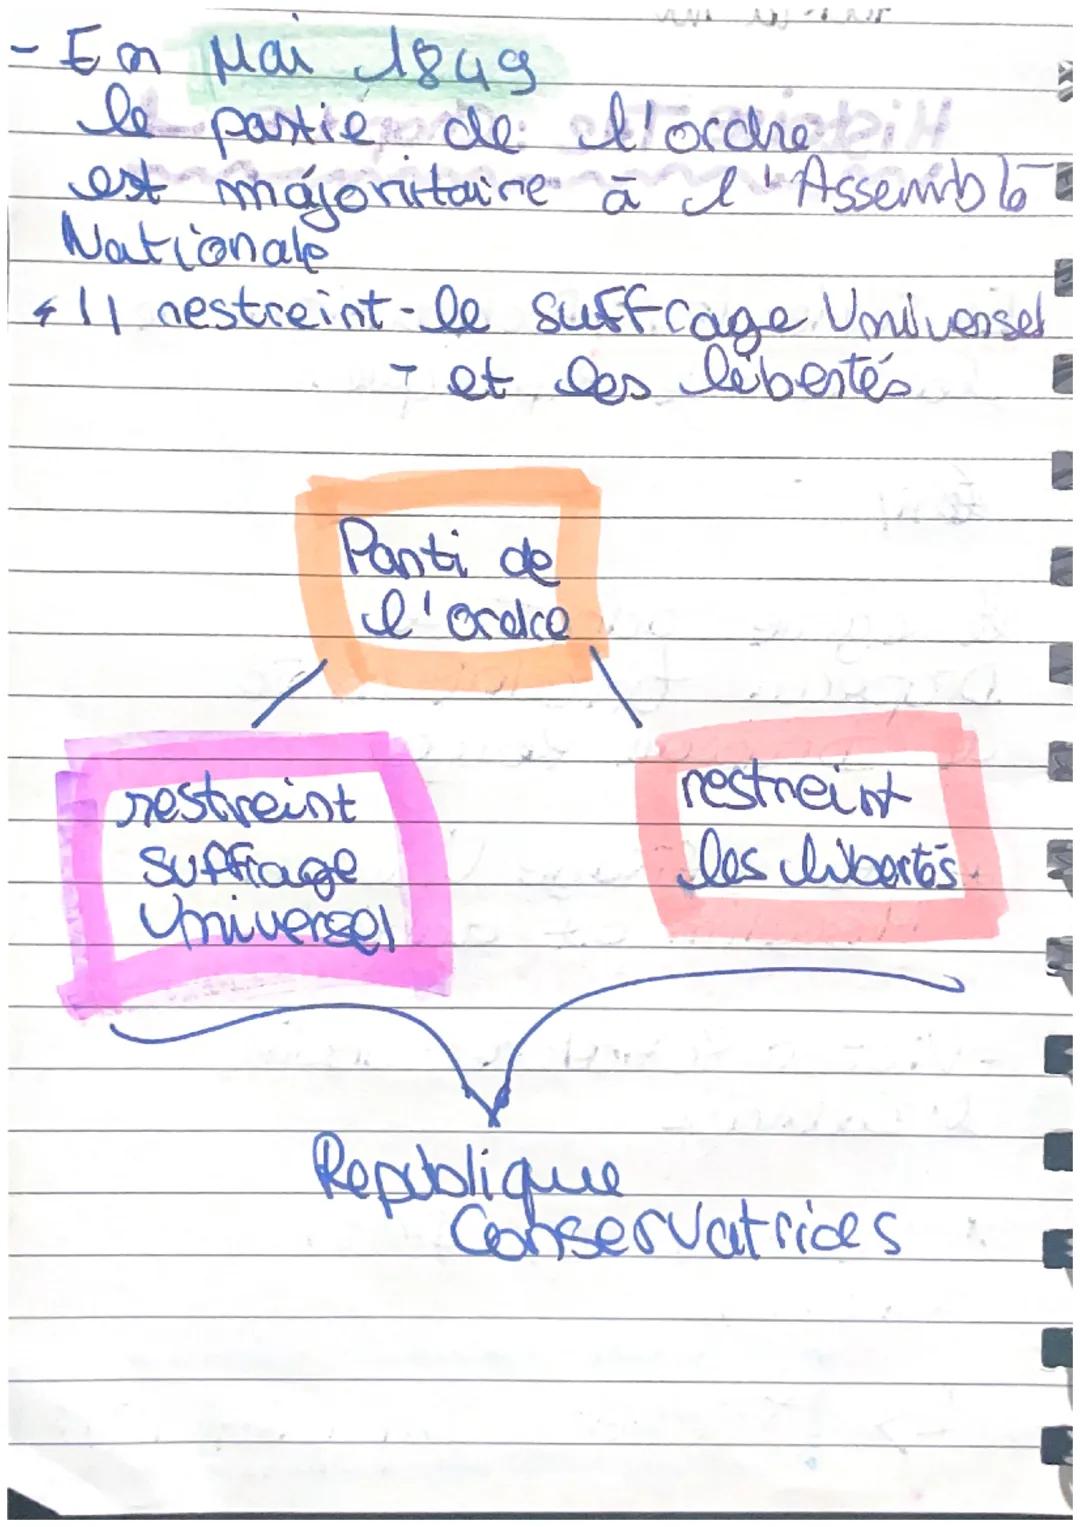 - En Mai 1849
le partie de l'ordre
est majoritaire à l'Assemblé
Nationale
Il restreint - le suffrage Universel
- et les libertés
Parti de
l'ordre
restreint
suffrage
Universel
restreint
les libertés
Republique
Conservatrices